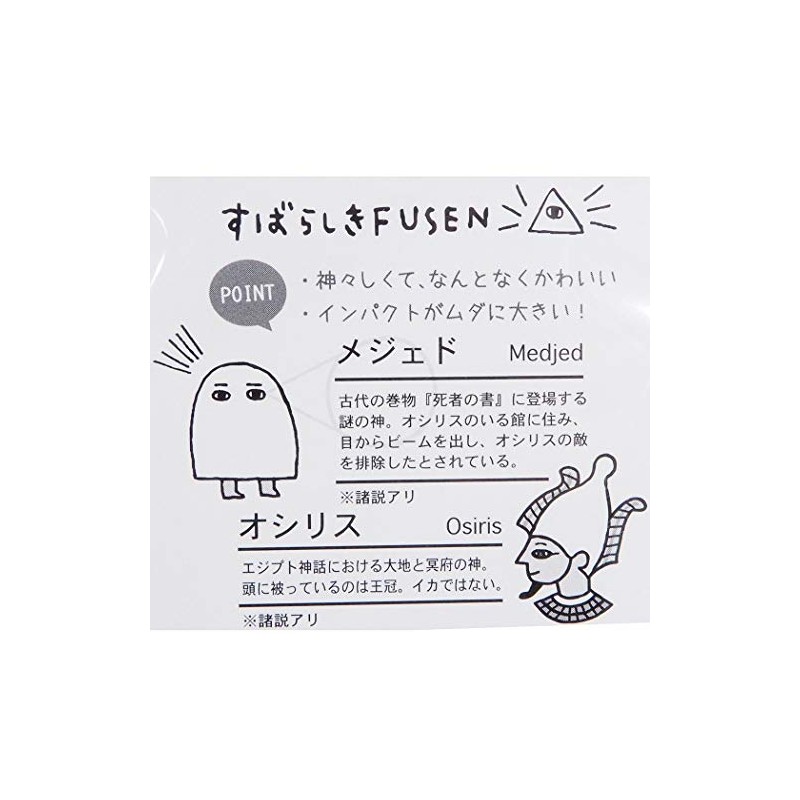 すばらしきFUSEN
POINT
・神々しくて、なんとなくかわいい
・インパクトがムダに大きい！
メジェド Medjed
古代の巻物『死者の書』に登場する
謎の神。オシリスのいる館に住み、
目からビームを出し、オシリスの敵
を排除したとされている。
※諸説アリ
オシリス Osiris
エジプト神話における大地と冥府の神。
頭に被っているのは王冠。イカではない。
※諸説アリ